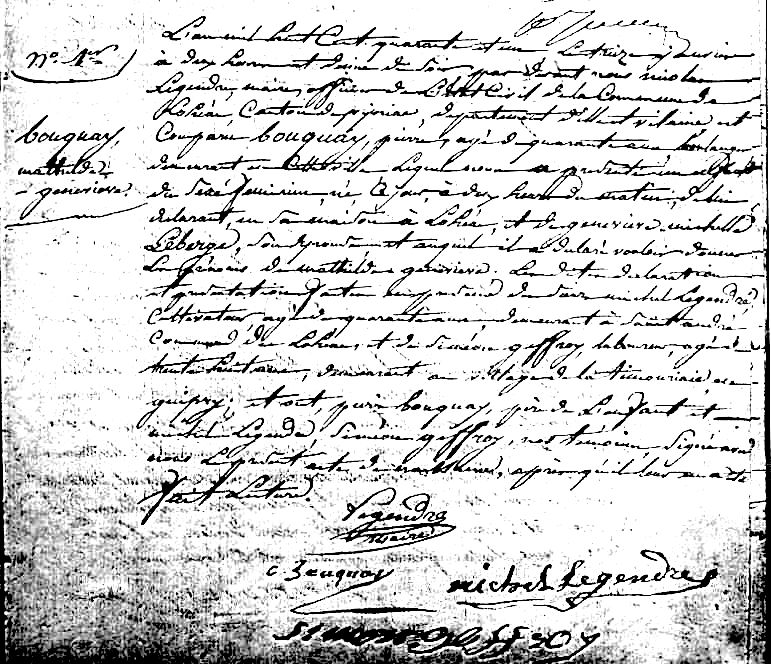 N° 1er
bouquay,
mathilde
geneviève.
L'an mil huit Cent quarante et un Le treize janvier
à deux heures et demie du Soir par devant nous nicolas
Legendre, maire, officier de L'état Civil de la Commune de
Lohéac, Canton de pipriac, département d'ille et vilaine est
Comparu bouquay, pierre, agé de quarante ans boulanger
demeurant en Cette ville Lequel nous a présenté un enfant
du sexe féminin, né Ce jour, à dix heures du matin, de lui
déclarant, en sa maison à Lohéac, et de geneviève michelle
Leberge, son épouse et auquel il a déclaré vouloir donner
Les prénoms de mathilde geneviève. Les dites déclaration
et présentation faites en présence de Sieur michel Legendre,
Cultivateur agé de quarante ans, demeurant à Saint andré
Commune de Lohéac, et de Siméon geffroy, laboureur, agé de
trente huit ans, demeurant au village de la timouraie, en
guipry; et ont, pierre bouquay, père de L'enfant et
michel Legendre, Siméon geffroy, nos témoins, Signé avec
nous Le présent acte de naissance, après qu'il leur en a été
fait Lecture.
Legendre
maire
Bouquay
michel Legendre
simeon geffroy